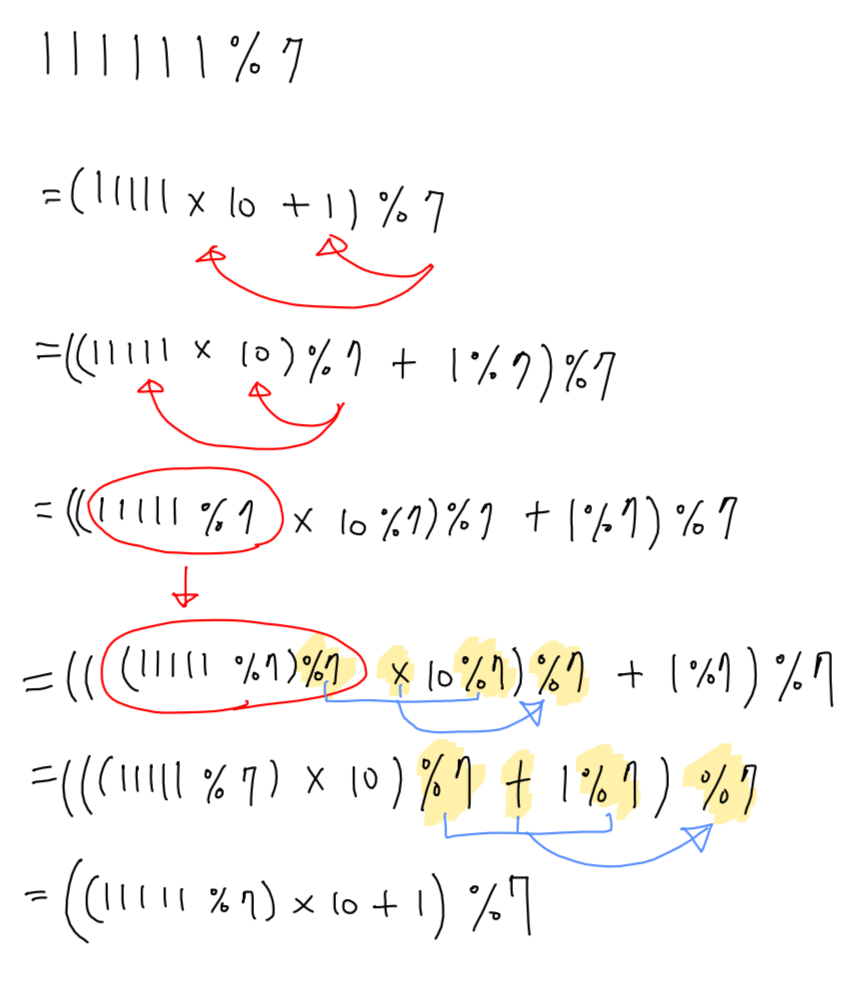 111111 % 7
=(11111 × 10 + 1) % 7
=((11111 × 10) % 7 + 1 % 7) % 7
=((11111 % 7 × 10 % 7) % 7 + 1 % 7) % 7
=(((11111 % 7) % 7 × 10 % 7) % 7 + 1 % 7) % 7
=(((11111 % 7) × 10) % 7 + 1 % 7) % 7
=((11111 % 7) × 10 + 1) % 7